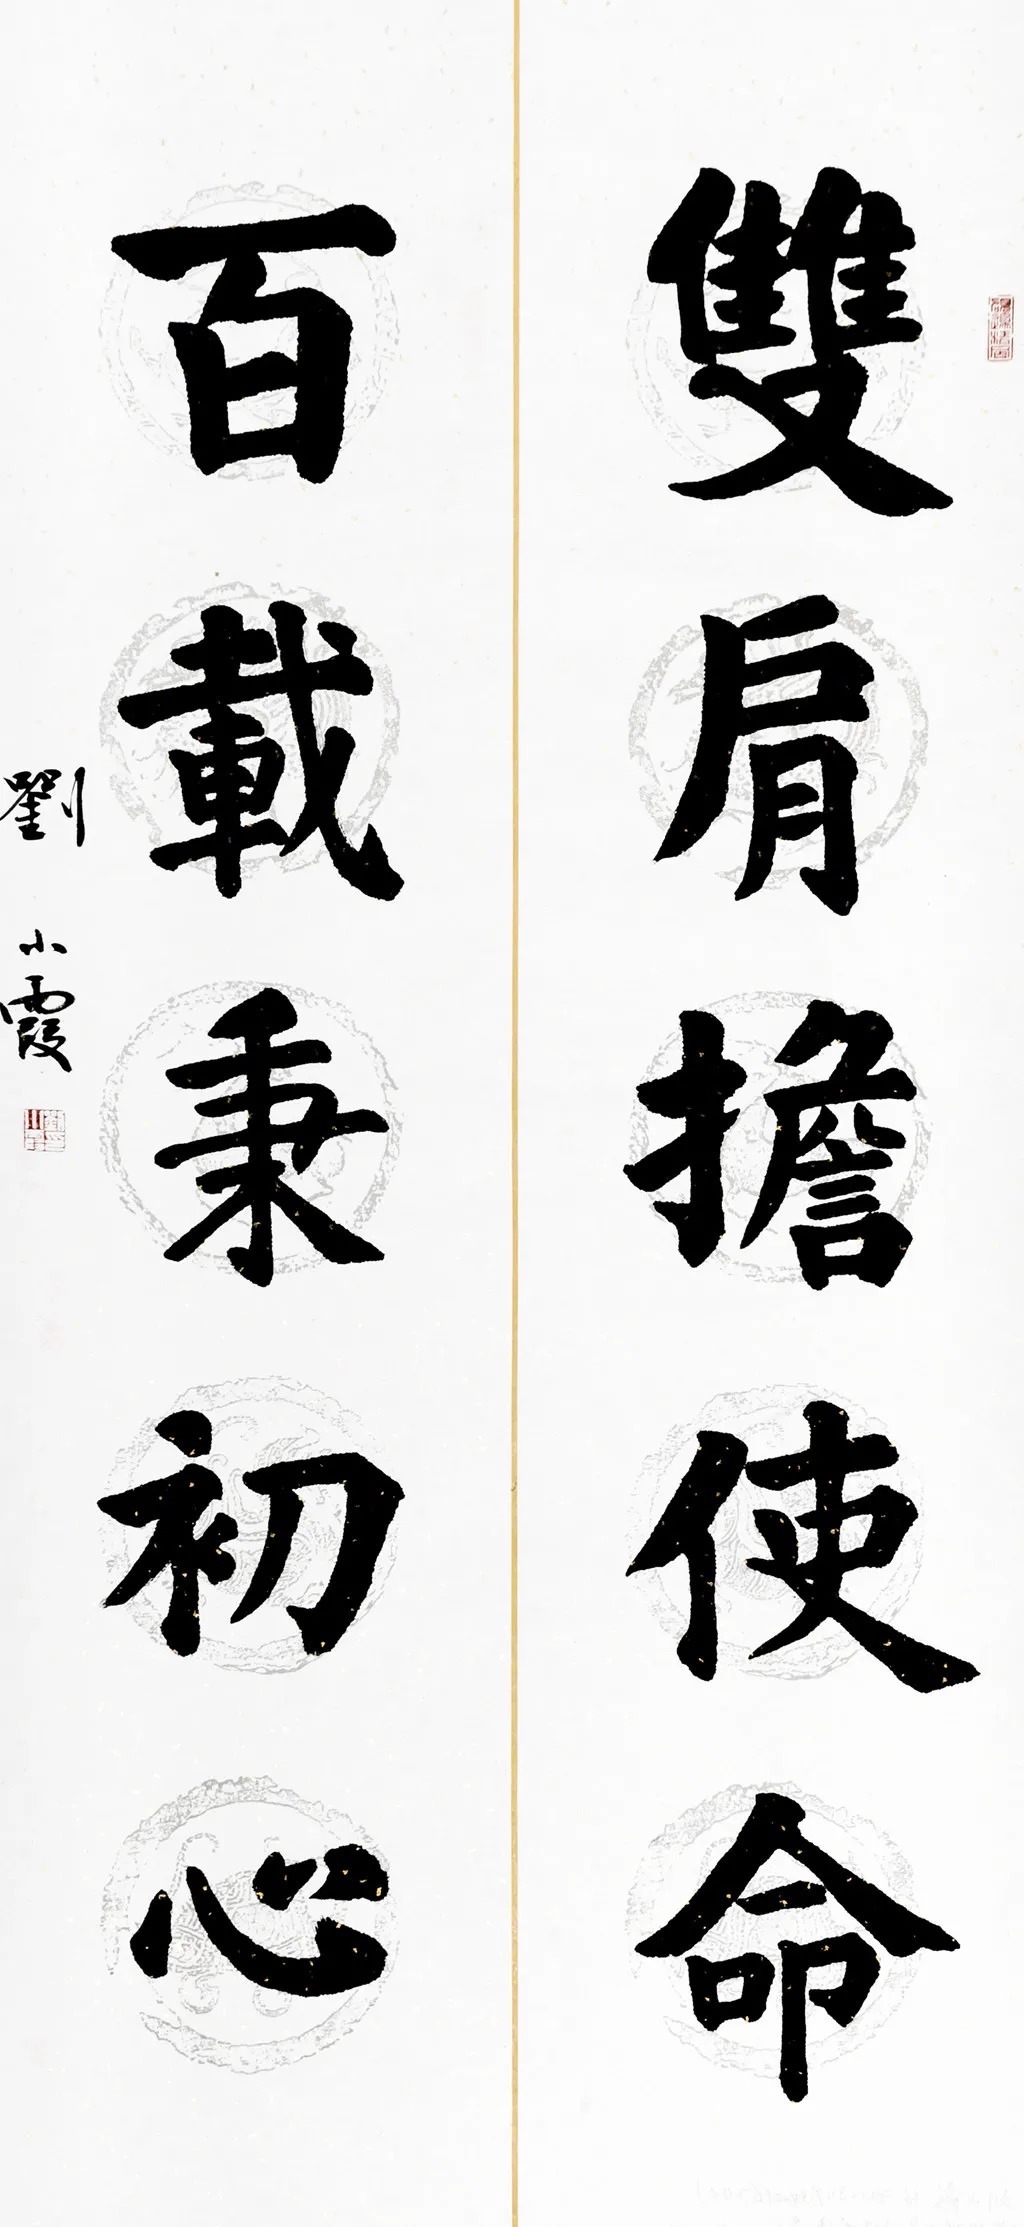 雙肩擔使命
百載秉初心
劉小霞